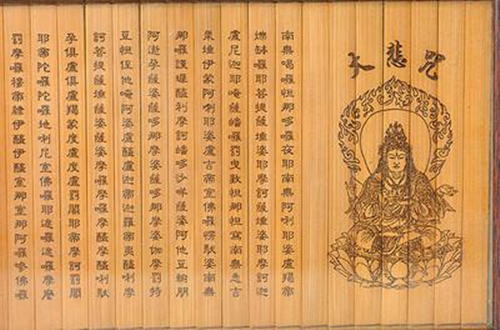 大悲咒
南無喝囉怛那哆囉夜耶南無阿唎耶婆盧羯帝
爍缽囉耶菩提薩埵婆耶摩訶薩埵婆耶摩訶迦
盧尼迦耶唵薩皤囉罰曳數怛那怛寫南無悉吉
栗埵伊蒙阿唎耶婆盧吉帝室佛囉楞馱婆南無
那囉謹墀醯利摩訶皤哆沙咩薩婆阿他豆輸朋
阿逝孕薩婆薩哆那摩婆薩哆那摩婆伽摩罰特
豆怛姪他唵阿婆盧醯盧迦帝迦羅帝夷醯唎摩
訶菩提薩埵薩婆薩婆摩囉摩囉摩醯摩醯唎馱
孕俱盧俱盧羯蒙度盧度盧罰闍耶帝摩訶罰闍
耶帝陀囉陀囉地唎尼室佛囉耶遮囉遮囉摩麼
罰摩囉穆帝隸伊醯伊醯室那室那阿囉參佛囉